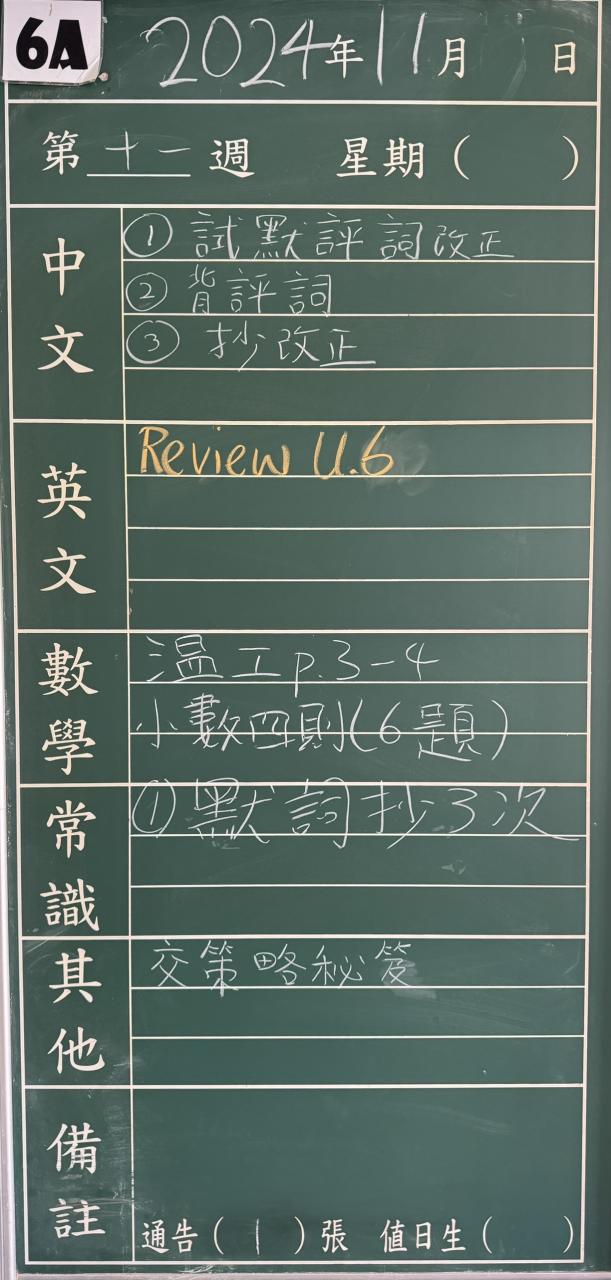 6A
2024年11月 日
第十一週 星期( )
中文
① 試默評詞改正
② 背評詞
③ 抄改正
英文
Review U.6
數學
温工p.3-4
小數四則(6題)
常識
① 默詞抄3次
其他
交策略秘笈
備註
通告(1)張 值日生( )